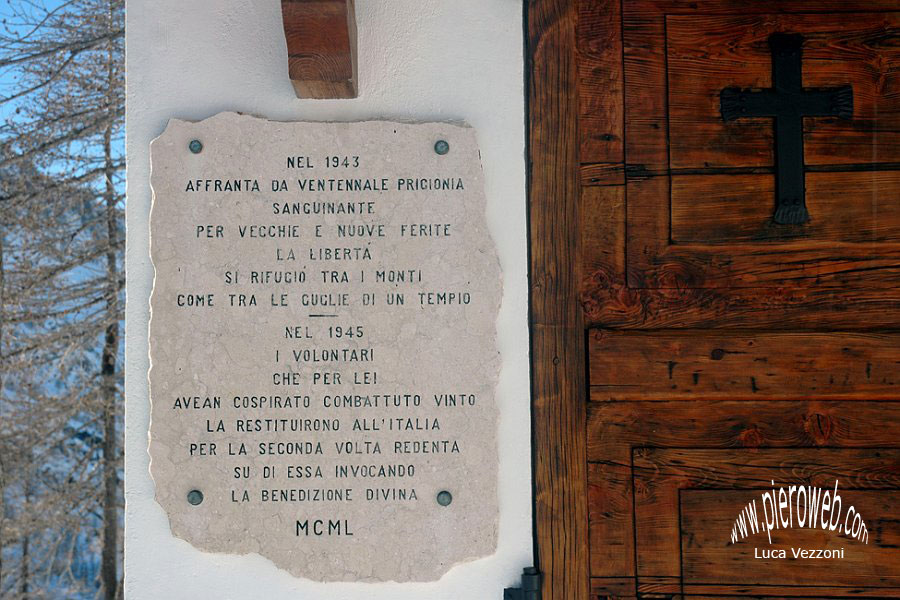 NEL 1943
AFFRANTA DA VENTENNALE PRIGIONIA
SANGUINANTE
PER VECCHIE E NUOVE FERITE
LA LIBERTÁ
SI RIFUGIÒ TRA I MONTI
COME TRA LE GUGLIE DI UN TEMPIO
NEL 1945
I VOLONTARI
CHE PER LEI
AVEAN COSPIRATO COMBATTUTO VINTO
LA RESTITUIRONO ALL'ITALIA
PER LA SECONDA VOLTA REDENTA
SU DI ESSA INVOCANDO
LA BENEDIZIONE DIVINA
MCML
www.pieroweb.com
Luca Vezzoni